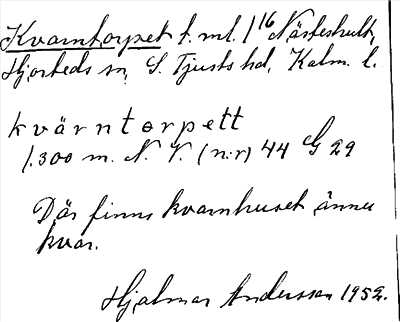 Kvarntorpet t. ml. 1/16 Nästeshult,
Hjorteds sn, S. Tjusts hd, Kalm. l.
kvärntorpett
1.300 m. N. V. (n:r) 44 G 29
Där finns kvarnhuset ännu
kvar.
Hjalmar Andersson 1952.